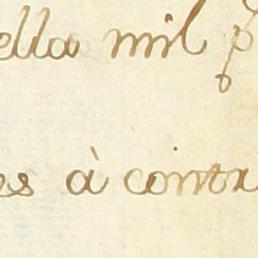 ella mil p
es à contr